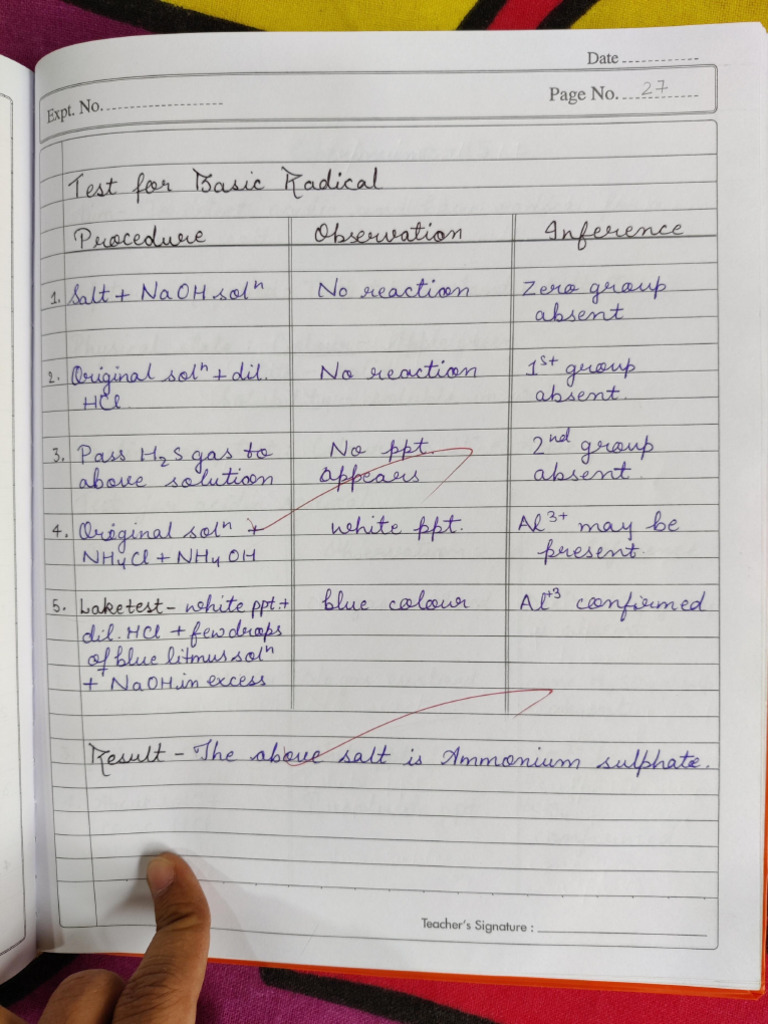 Date
Expt. No.
Page No. 27
Test for Basic Radical
Procedure Observation Inference
1. Salt + NaOH solⁿ No reaction Zero group
absent
2. Original solⁿ + dil. No reaction 1st group
HCl. absent.
3. Pass H₂S gas to No ppt. 2nd group
above solution appears absent.
4. Original solⁿ + white ppt. Al³⁺ may be
NH₄Cl + NH₄OH present.
5. Lake test - white ppt. + blue colour Al⁺³ confirmed
dil. HCl + few drops
of blue litmus solⁿ
+ NaOH in excess
Result - The above salt is Ammonium sulphate.
Teacher's Signature :